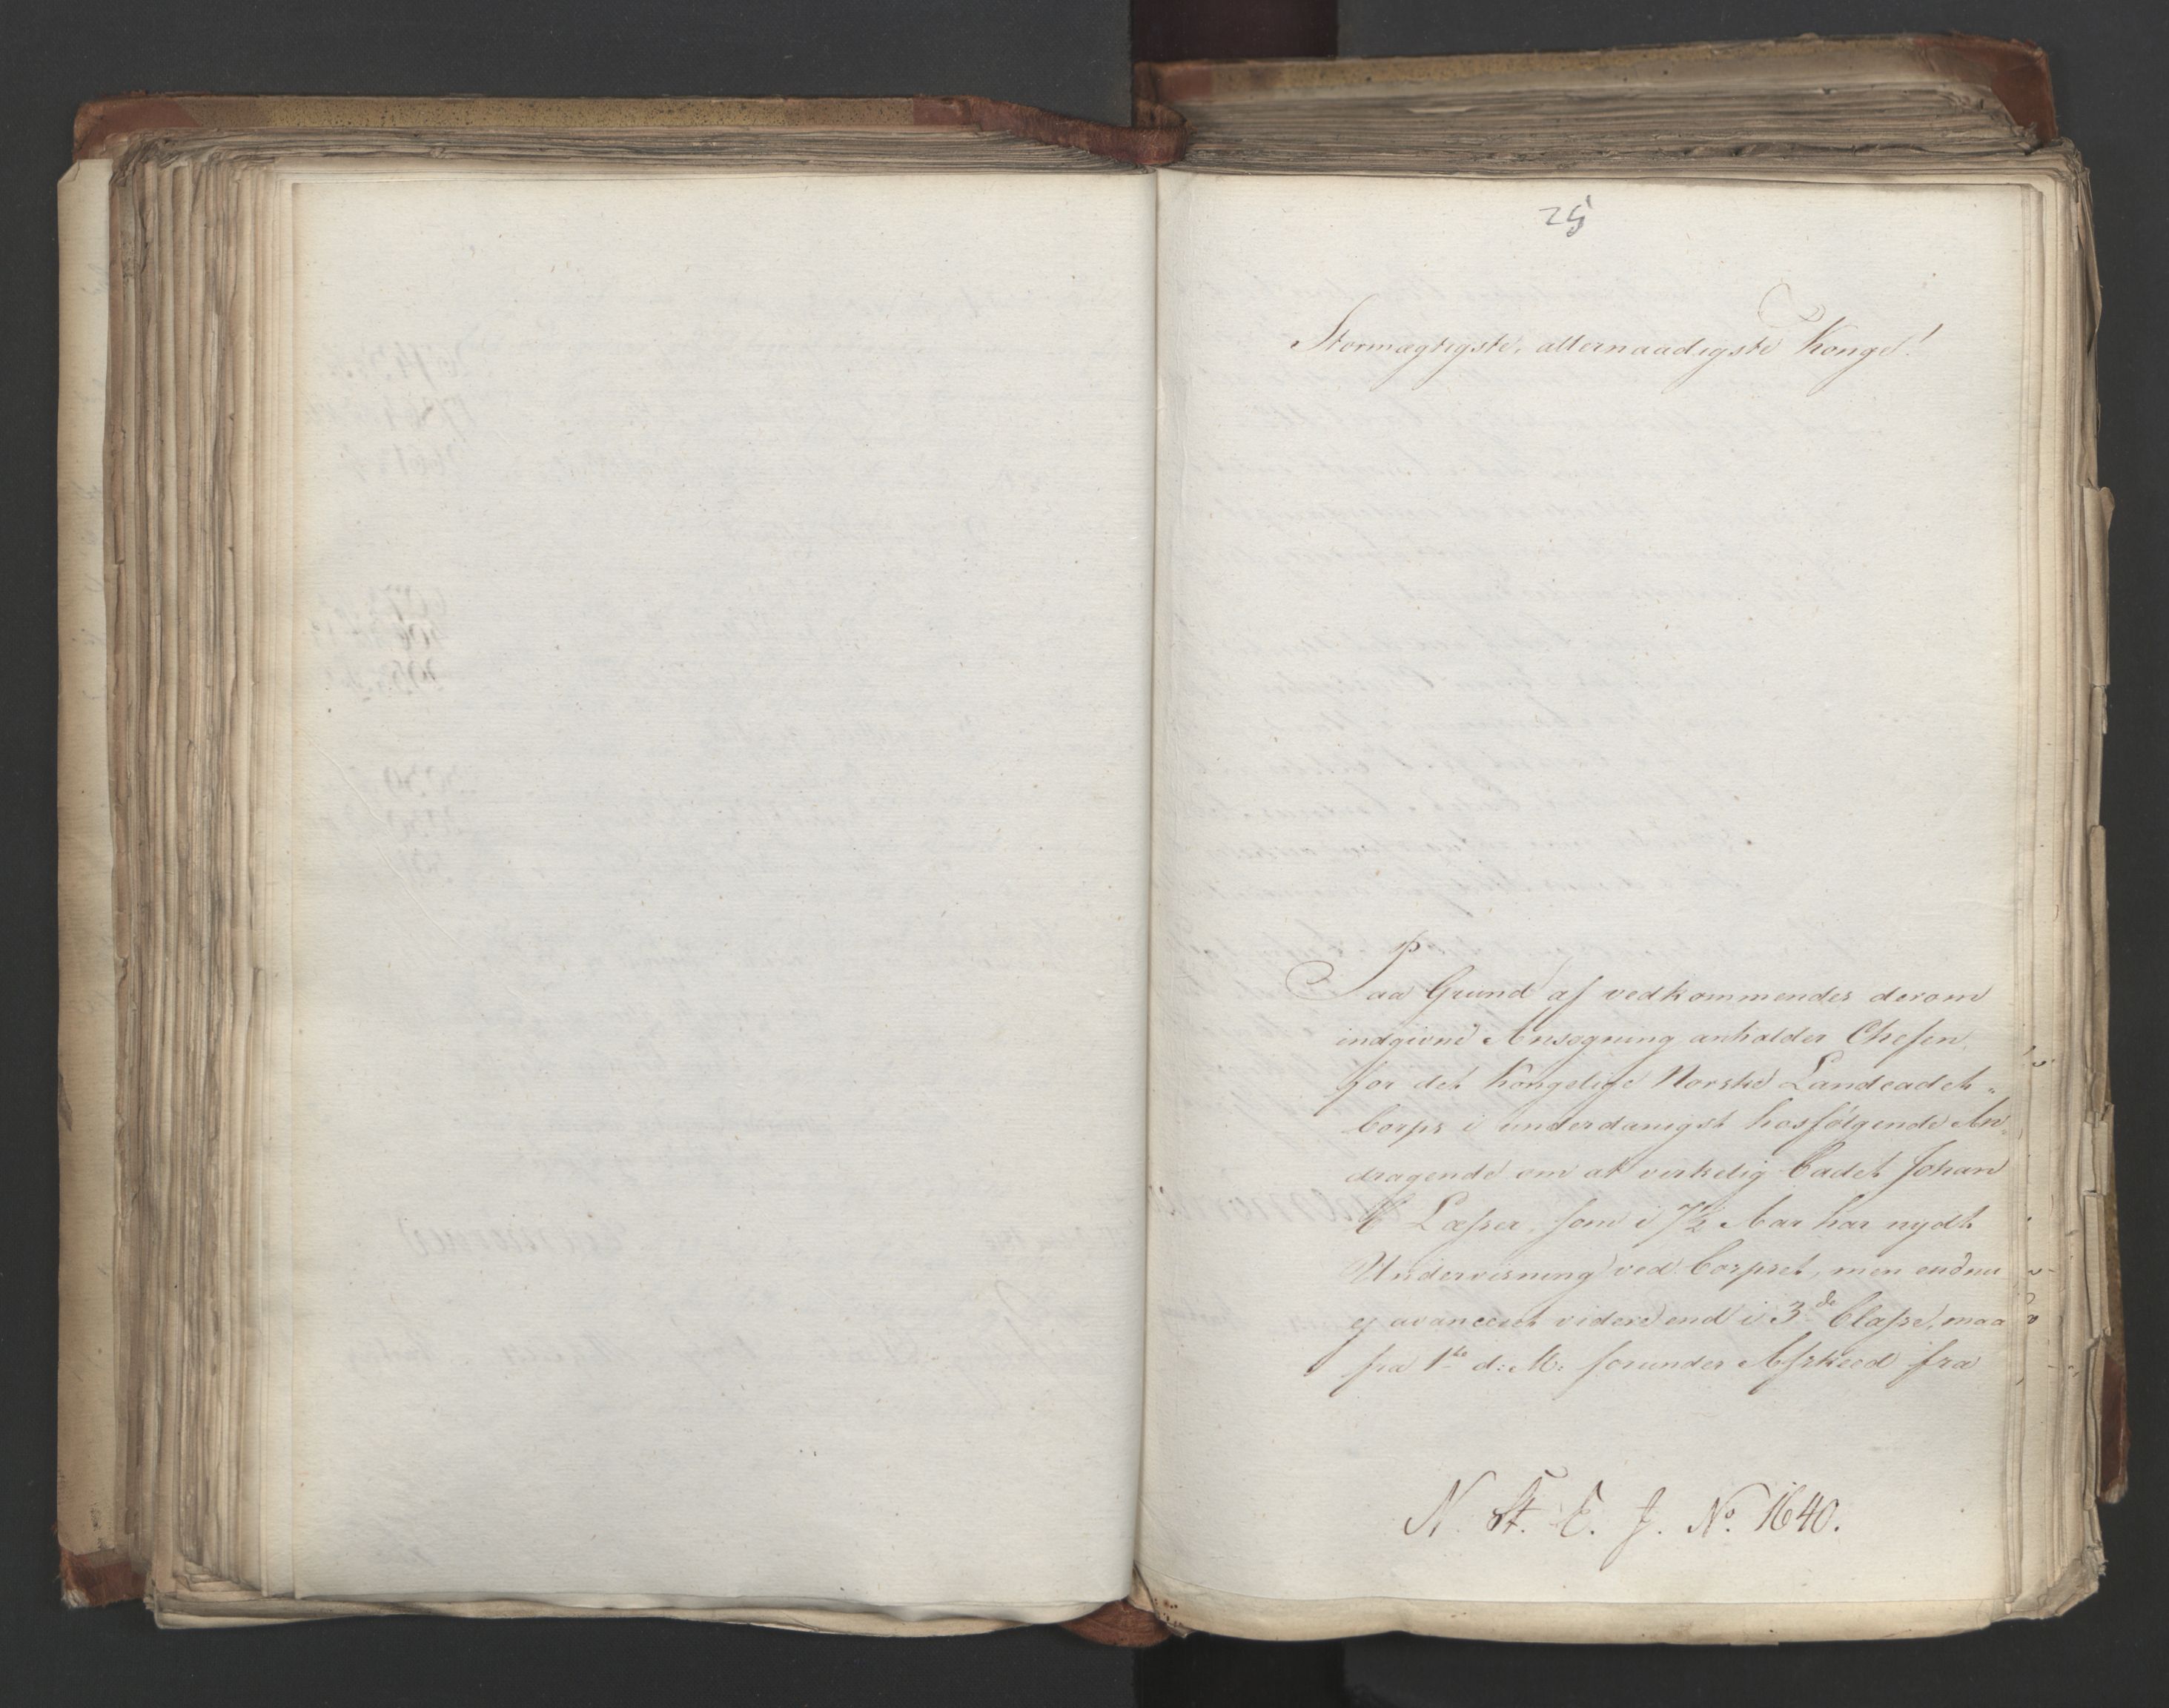 25
Stormægtigste, allernaadigste Konge!
Paa Grund af vedkommendes derom
indgivne Ansøgning anholder Chefen
for det Kongelige Norske Landcadet-
Corps i underdanigst hosfølgende An-
dragende om at virkelig Cadet Johan
Læsser, som i 7½ Aar har nydt
Underviisning ved Corpset, men endnu
ej avanceret videre end i 3de Classe, maa
fra 1ste d: M: forunder Afskeed fra
N. St. E. J. No. 1640.